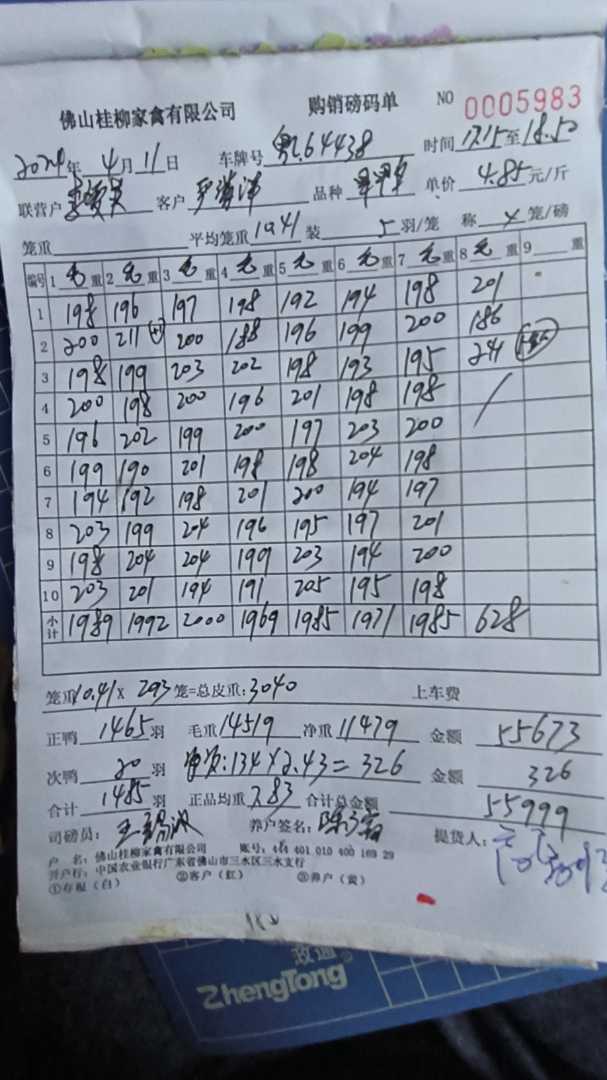 佛山桂柳家禽有限公司 购销磅码单 NO 0005983
2024年 4月 11日 车牌号 粤L64438 时间 17.15至18.50
联营户 客户 品种 单价 4.85元/斤
笼重 平均笼重 1041 装 5 羽/笼 称 4 笼/磅
编号 1 毛 重 2 毛 重 3 毛 重 4 毛 重 5 毛 重 6 毛 重 7 毛 重 8 毛 重 9 重
1 198 196 197 198 192 194 198 201
2 200 211 (+1) 200 188 196 199 200 186
3 198 199 203 202 198 193 195 241
4 200 198 200 196 201 198 198
5 196 202 199 200 197 203 200
6 199 190 201 198 198 204 198
7 194 192 198 201 200 194 197
8 203 199 204 196 195 197 201
9 198 204 204 199 203 194 200
10 203 201 194 191 205 195 198
小计 1989 1992 2000 1969 1985 1971 1985 628
笼重10.41 x 293 笼=总皮重:3040 上车费
正鸭 1465 羽 毛重 14519 净重 11479 金额 55673
次鸭 20 羽 净次:134 x 2.43 = 326 金额 326
合计 1485 羽 正品均重 7.83 合计总金额 55999
司磅员: 养户签名: 提货人:
户 名:佛山桂柳家禽有限公司 账号:444 401 010 400 169 29
开户行:中国农业银行广东省佛山市三水区三水支行
①存根(白) ②客户(红) ③养户(黄)
政通
ZhengTong